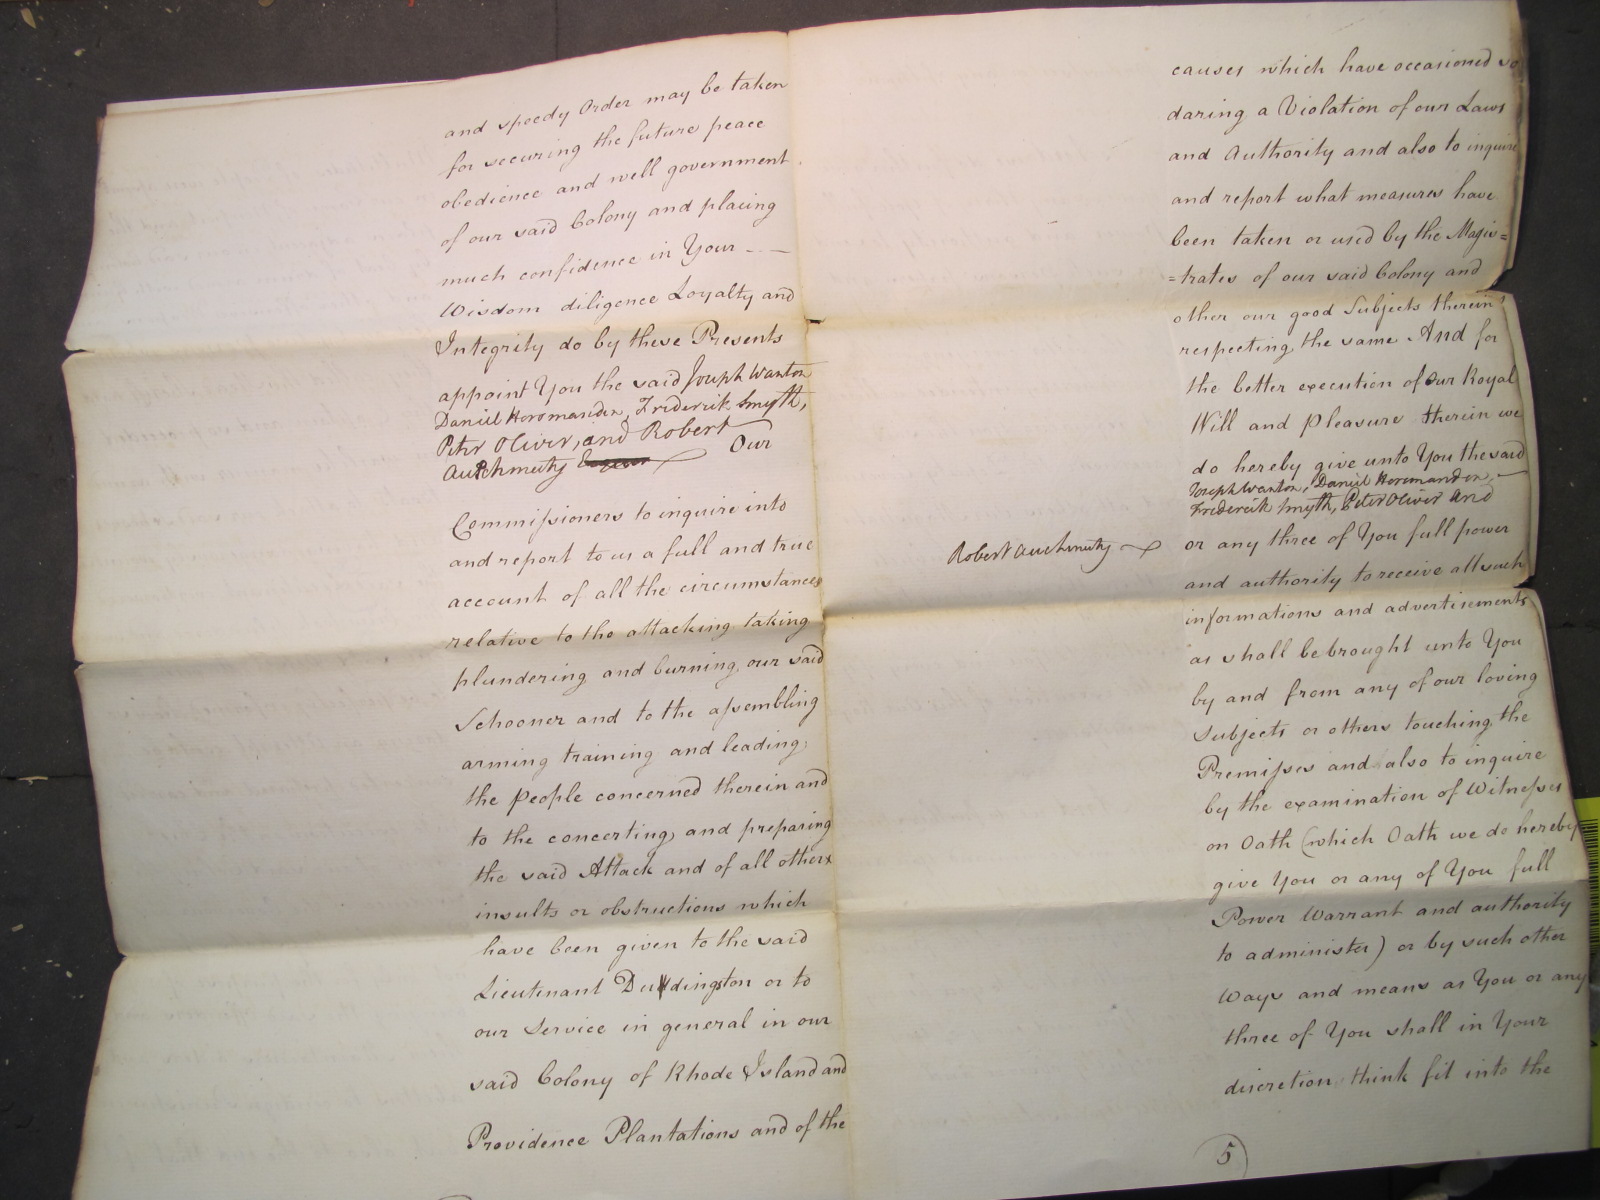 and speedy Order may be taken
for securing the future peace
obedience and well government
of our said Colony and placing
much confidence in Your - —
Wisdom diligence Loyalty and
Integrity do by these Presents
appoint You the said Joseph Wanton
Daniel Horsmanden, Frederick Smyth,
Peter Oliver, and Robert
Auchmuty Our
Commissioners to inquire into
and report to us a full and true
account of all the circumstances
relative to the attacking taking
plundering and burning our said
Schooner and to the assembling
arming training and leading
the people concerned therein and
to the concerting and preparing
the said Attack and of all other
insults or obstructions which
have been given to the said
Lieutenant Duddingston or to
our Service in general in our
said Colony of Rhode Island and
Providence Plantations and of the
causes which have occasioned so
daring a Violation of our Laws
and Authority and also to inquire
and report what measures have
been taken or used by the Magis=
=trates of our said Colony and
other our good Subjects therein
respecting the same And for
the better execution of Our Royal
Will and Pleasure therein we
do hereby give unto You the said
Joseph Wanton, Daniel Horsmanden, —
Frederick Smyth, Peter Oliver and
Robert Auchmuty
or any three of You full power
and authority to receive all such
informations and advertisements
as shall be brought unto You
by and from any of our loving
Subjects or others touching the
Premisses and also to inquire
by the examination of Witnesses
on Oath (which Oath we do hereby
give You or any of You full
Power Warrant and authority
to administer) or by such other
Ways and means as You or any
three of You shall in Your
discretion think fit into the
5